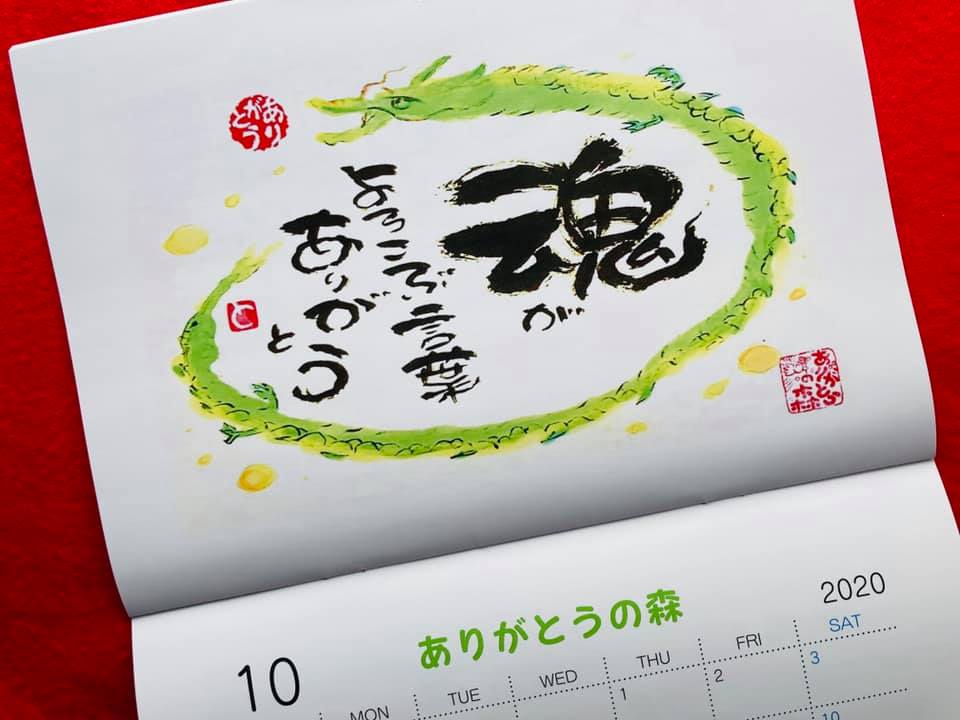 魂が
よろこぶ言葉
ありがとう
ありがとう
ありがとうの森
ありがとうの森
2020
10
MON TUE WED THU FRI SAT
1 2 3
10